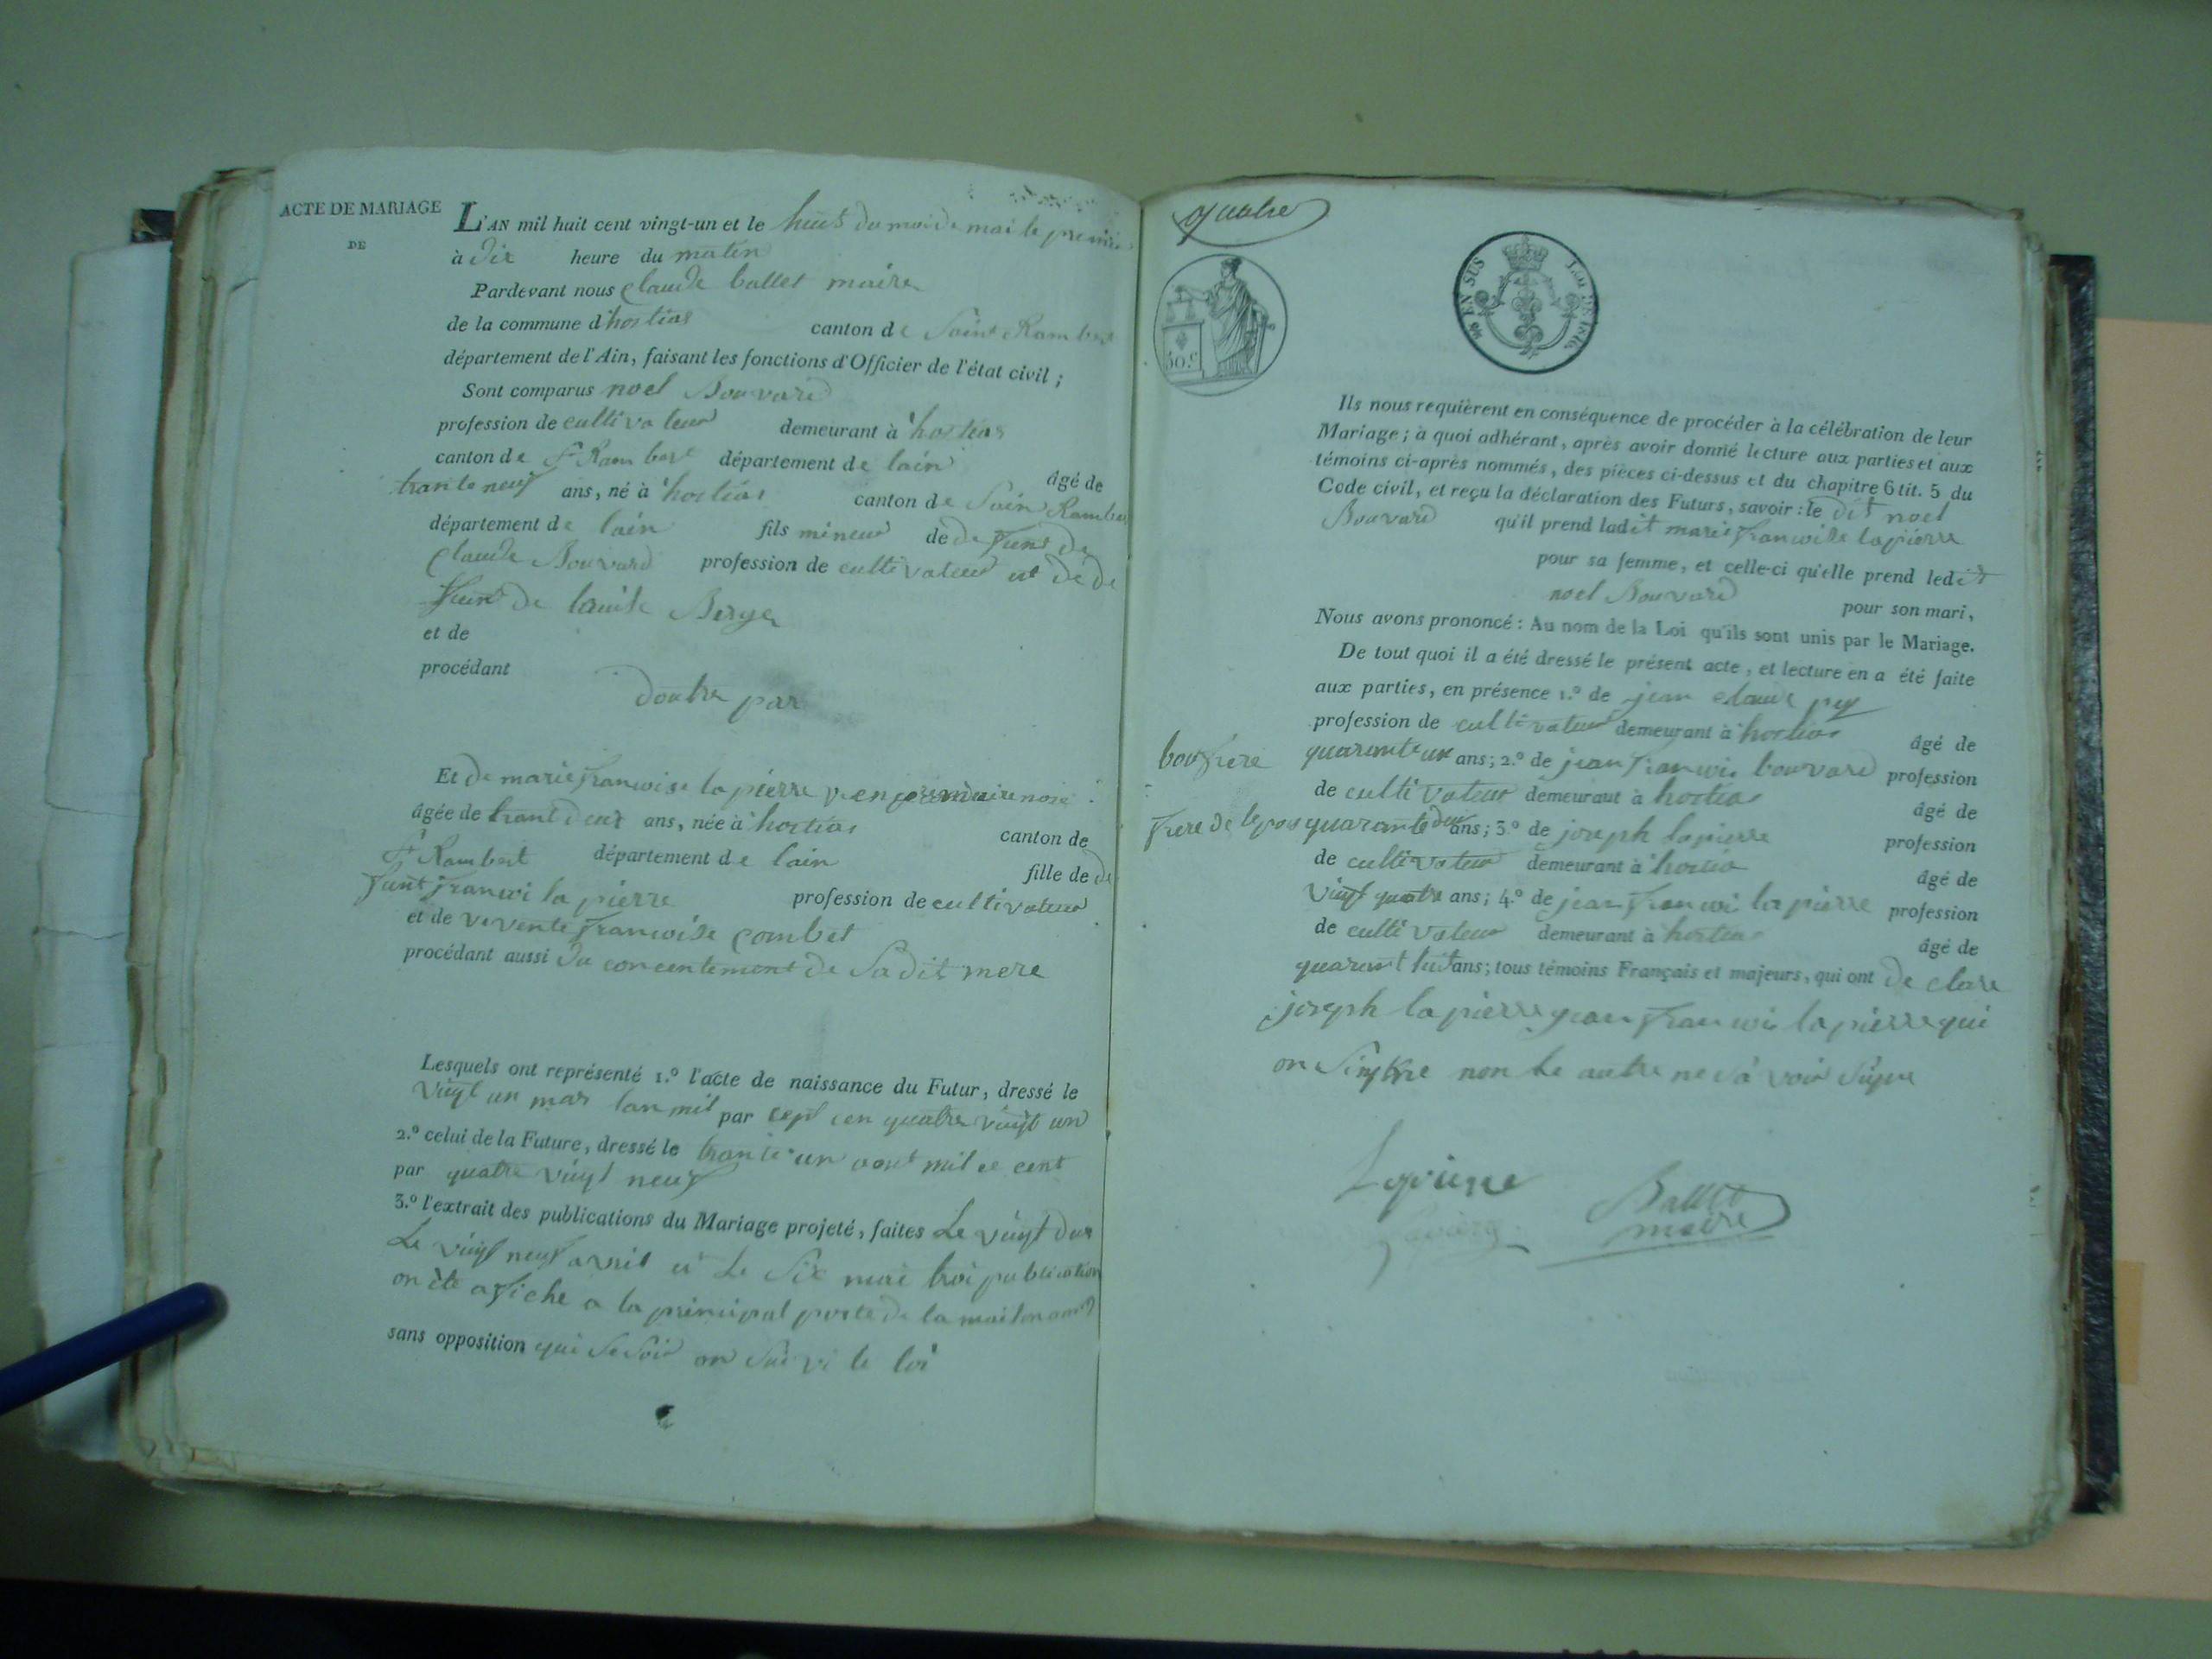 ACTE DE MARIAGE
DE
L'AN mil huit cent vingt-un et le huit du moi de mai le premier
à dix heure du matin
Pardevant nous claude ballet maire
de la commune d'hostias canton de Saint Rambert
département de l'Ain, faisant les fonctions d'Officier de l'état civil ;
Sont comparus noel Bouvard
profession de cultivateur demeurant à hostias
canton de St Rambert département de lain âgé de
trante neuf ans, né à hostias canton de Sain Rambert
département de lain fils mineur de de funt de
Claude Bouvard profession de cultivateur et de de
funt de louise Berger
et de
procédant
doutre par
Et de marie francoise la pierre
âgée de trant deux ans, née à hostias canton de
St Rambert département de lain fille de de
funt francoi la pierre profession de cultivateur
et de vivente francoise combet
procédant aussi du concentement de Sa dit mere
Lesquels ont représenté 1.º l'acte de naissance du Futur, dressé le
vingt un mar lan mil par sept cen quatre vingt un
2.º celui de la Future, dressé le trante un aout mil ce cent
par quatre vingt neuf
3.º l'extrait des publications du Mariage projeté, faites Le vingt dux
Le vingt neuf avril et Le Six mai troi publication
on été afiche a la principal porte de la maison
sans opposition qui Se Soit on Suivi le loi
quatre
50.c
EN SUS
LOI DE 1816.
Ils nous requièrent en conséquence de procéder à la célébration de leur
Mariage ; à quoi adhérant, après avoir donné lecture aux parties et aux
témoins ci-après nommés, des pièces ci-dessus et du chapitre 6 tit. 5 du
Code civil, et reçu la déclaration des Futurs, savoir : le dit noel
Bouvard qu'il prend ladit marie francoise lapierre
pour sa femme, et celle-ci qu'elle prend ledit
noel Bouvard pour son mari,
Nous avons prononcé : Au nom de la Loi qu'ils sont unis par le Mariage.
De tout quoi il a été dressé le présent acte, et lecture en a été faite
aux parties, en présence 1.º de jean claude pey
profession de cultivateur demeurant à hostias âgé de
boufrere quarante un ans ; 2.º de jean francoi bouvard profession
de cultivateur demeurant à hostias âgé de
frere de lepou quarante deux ans ; 3.º de joseph lapierre profession
de cultivateur demeurant à hostia âgé de
vingt quatre ans ; 4.º de jean francoi la pierre profession
de cultivateur demeurant à hostias âgé de
quarant huit ans ; tous témoins Français et majeurs, qui ont de clare
joseph la pierre jean francoi la pierre qui
on Singne non le autre ne Sa voir Signe
Lapierre
Ballet
maire